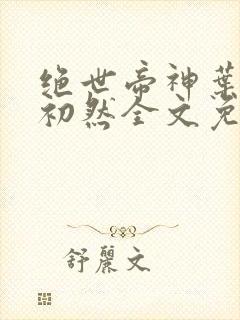 绝世帝神葉
初然全文免
舒麗文